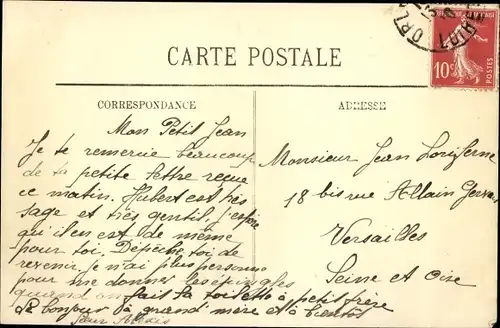 CARTE POSTALE
CORRESPONDANCE
ADRESSE
10c
POSTES
Mon Petit Jean
Je te remercie beaucoup
de ta petite lettre reçue
ce matin. Hubert est très
sage et très gentil, j'espère
qu'il en est de même
pour toi. Dépèche toi de
revenir. je n'ai plus personne
pour me donner les épingles
quand on fait la toilette à petit frère
le bonjour à grand'mère et à bientôt
Monsieur Jean
18 bis rue Allain Gervais
Versailles
Seine et Oise